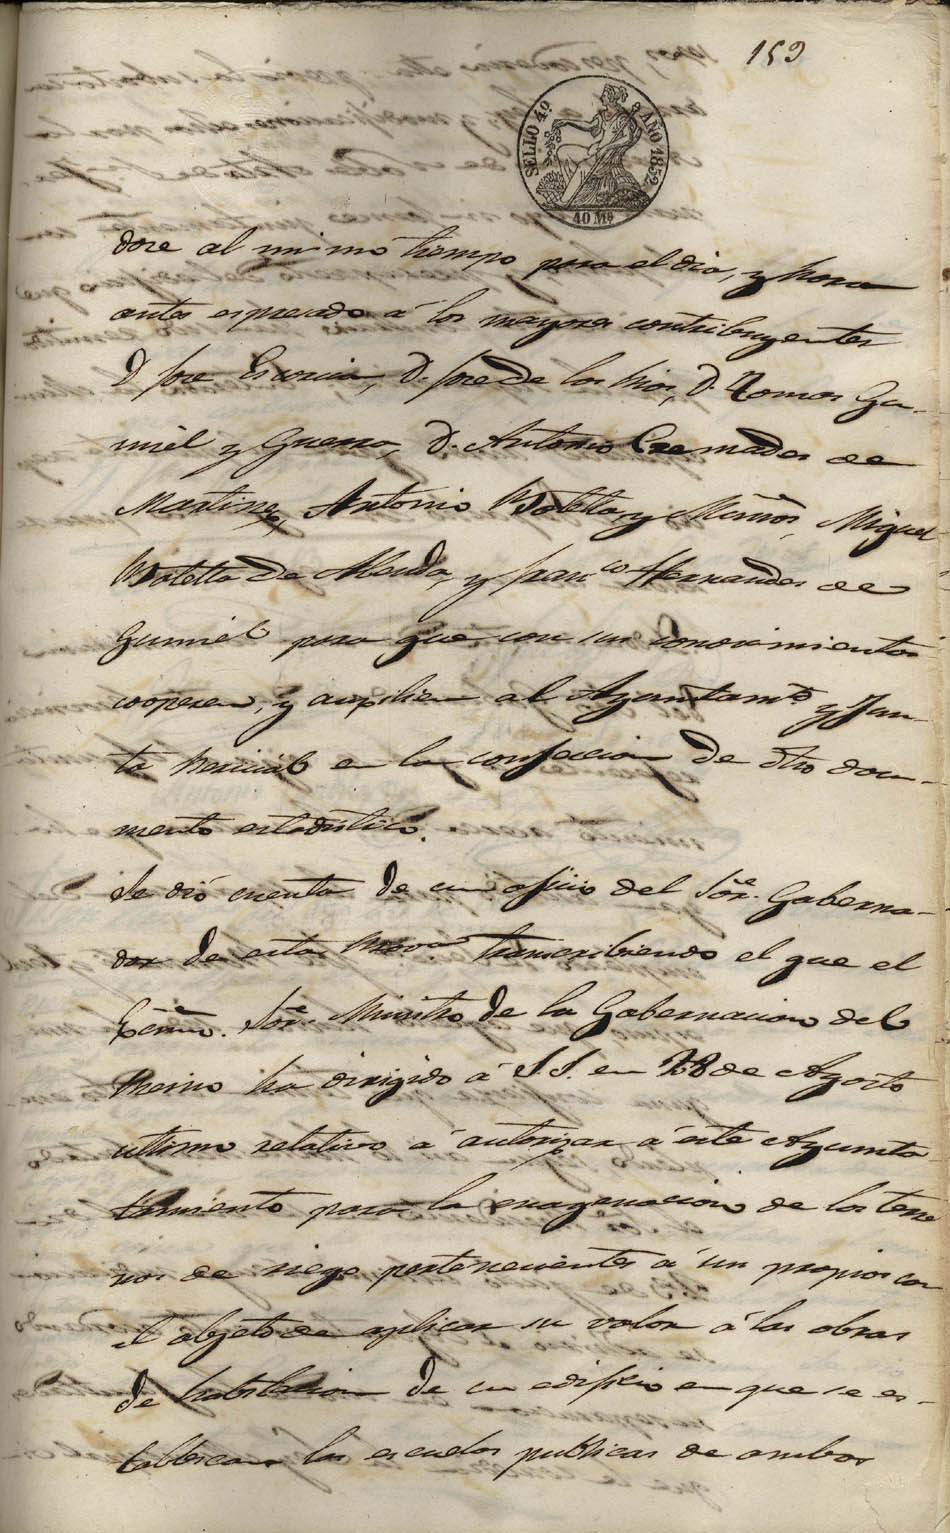 159
SELLO 4º AÑO 1852
40 Mˢ
dose al mismo tiempo para el dia, y hora
antes espresado á los mayores contribuyentes
D Jose Escorcia, D. Jose de los Rios, D. Tomas Gu-
miel y Guerra, D. Antonio Cremades de
Martinez, Antonio Botella y Miñon, Miguel
Botella de Abenda, y Franᶜᵒ Hernandes de
Gumiel para que con sus conocimientos
cooperen, y auxilien al Ayuntamᵗᵒ y Jun-
ta Pericial en la confeccion de dho docu-
mento estadistico.
Se dió cuenta de un oficio del Sorᵉ. Goberna-
dor de esta Provᵃ transcribiendo el que el
Exmo. Sorᵉ. Ministro de la Gobernacion del
Reino ha dirigido á S.S. en 28 de Agosto
ultimo relativo á autorizar á este Ayunta
tamiento para la enagenacion de los terre
nos de riego pertenecientes á sus propios con
el objeto de aplicar su valor á las obras
de habilitacion de un edificio en que se es-
tablescan las escuelas publicas de ambos